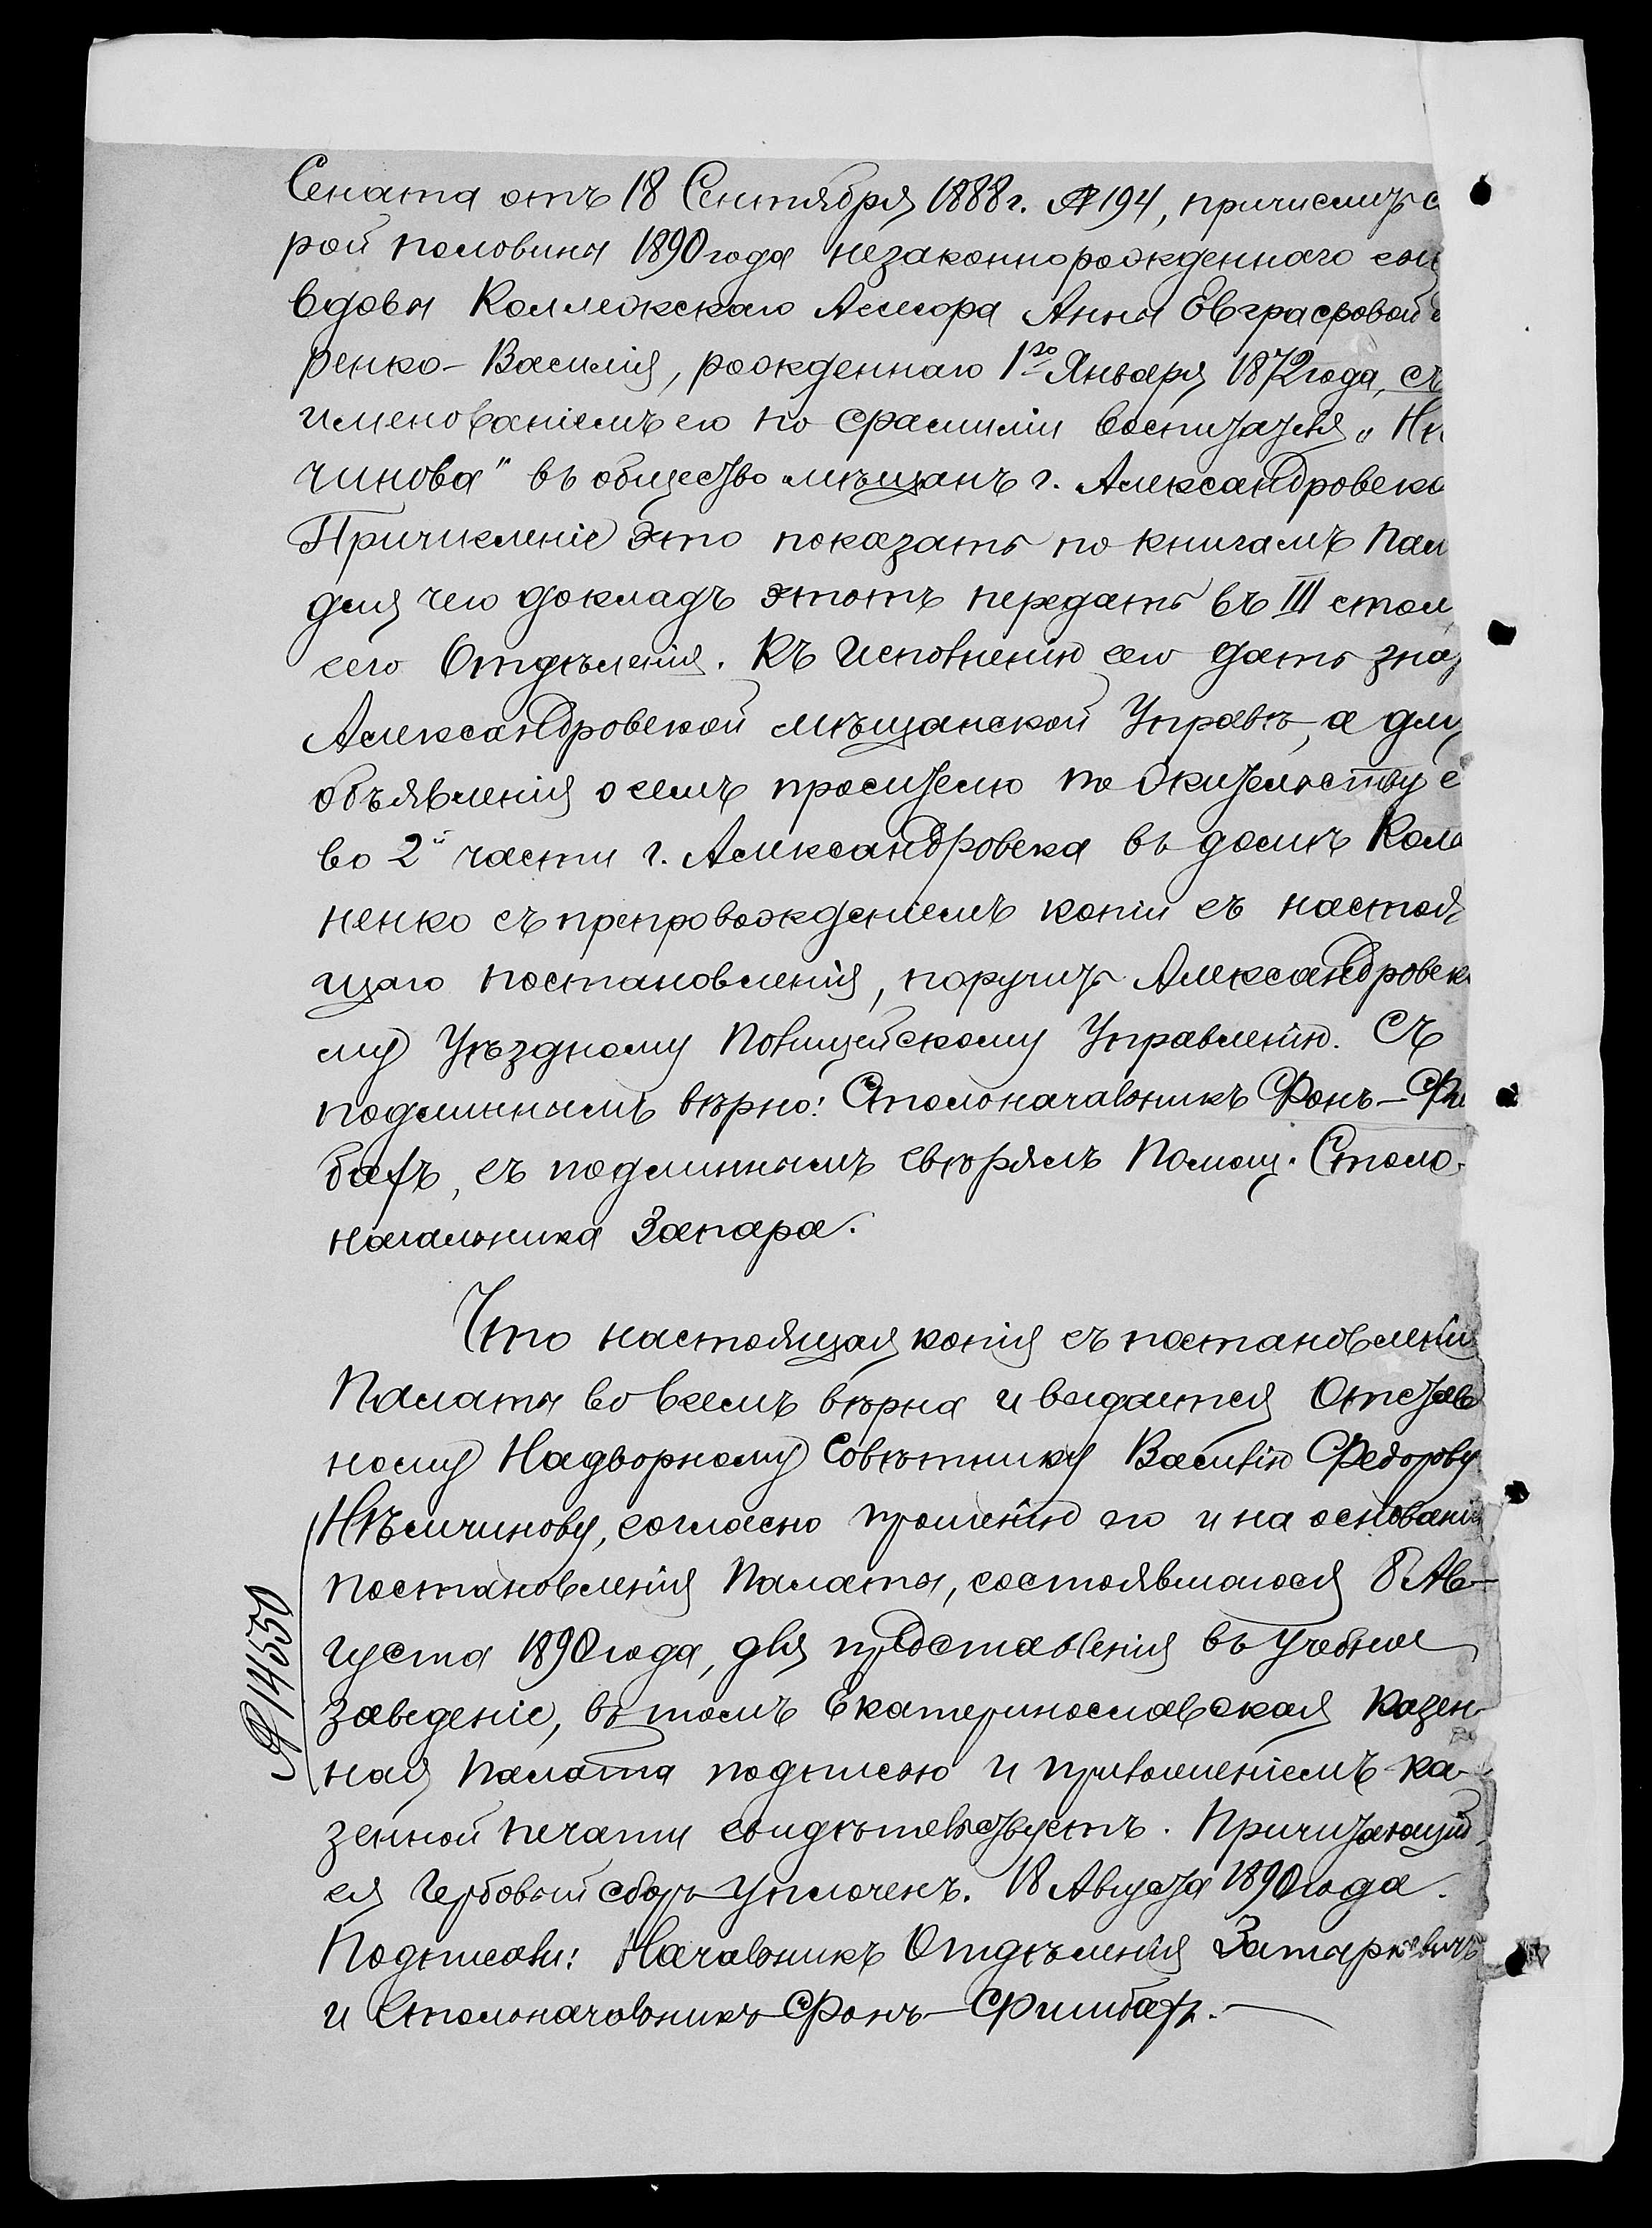 Сената отъ 18 Сентября 1888 г. № 194, причислить с
рой половины 1890 года незаконнорожденнаго сын
вдовы Коллежскаго Ассесора Анны Евграфовой
ренко - Василія, рожденнаго 1го Января 1872 года, съ
именованіемъ его по фамиліи воспитателя „Нѣ
чинова" въ общество мѣщанъ г. Александровска
Причисленіе это показать по книгамъ Пал
для чего докладъ этотъ передать въ III стол
сего Отдѣленія. Къ исполненію сего дать знат
Александровской мѣщанской Управѣ, а для
объявленія о семъ просителю по жительству е
во 2й части г. Александровска въ домѣ Коло
ненко съ препровожденіемъ копіи съ настоя
щаго постановленія, поручить Александровск
му Уѣздному Полицейскому Управленію. Съ
подлиннымъ вѣрно: Столоначальникъ Фонъ-Фи
бахъ, съ подлиннымъ свѣрялъ Помощ. Столо-
начальника Запара.
Что настоящая копія съ постановленія
Палаты во всемъ вѣрна и выдается Отстав
ному Надворному Совѣтнику Василію Федорову
Нѣмчинову, согласно прошенію его и на основаніи
постановленія Палаты, состоявшагося 8 Ав-
густа 1890 года, для представленія въ учебное
заведеніе, въ томъ Екатеринославская Казен-
ная Палата подписью и приложеніемъ ка-
зенной печати свидѣтельствуетъ. Причитающій
ся гербовый сборъ уплоченъ. 18 Августа 1890 года.
Подписали: Начальникъ Отдѣленія Затаркевичъ
и Столоначальникъ Фонъ-Фишбахъ.
№ 14550